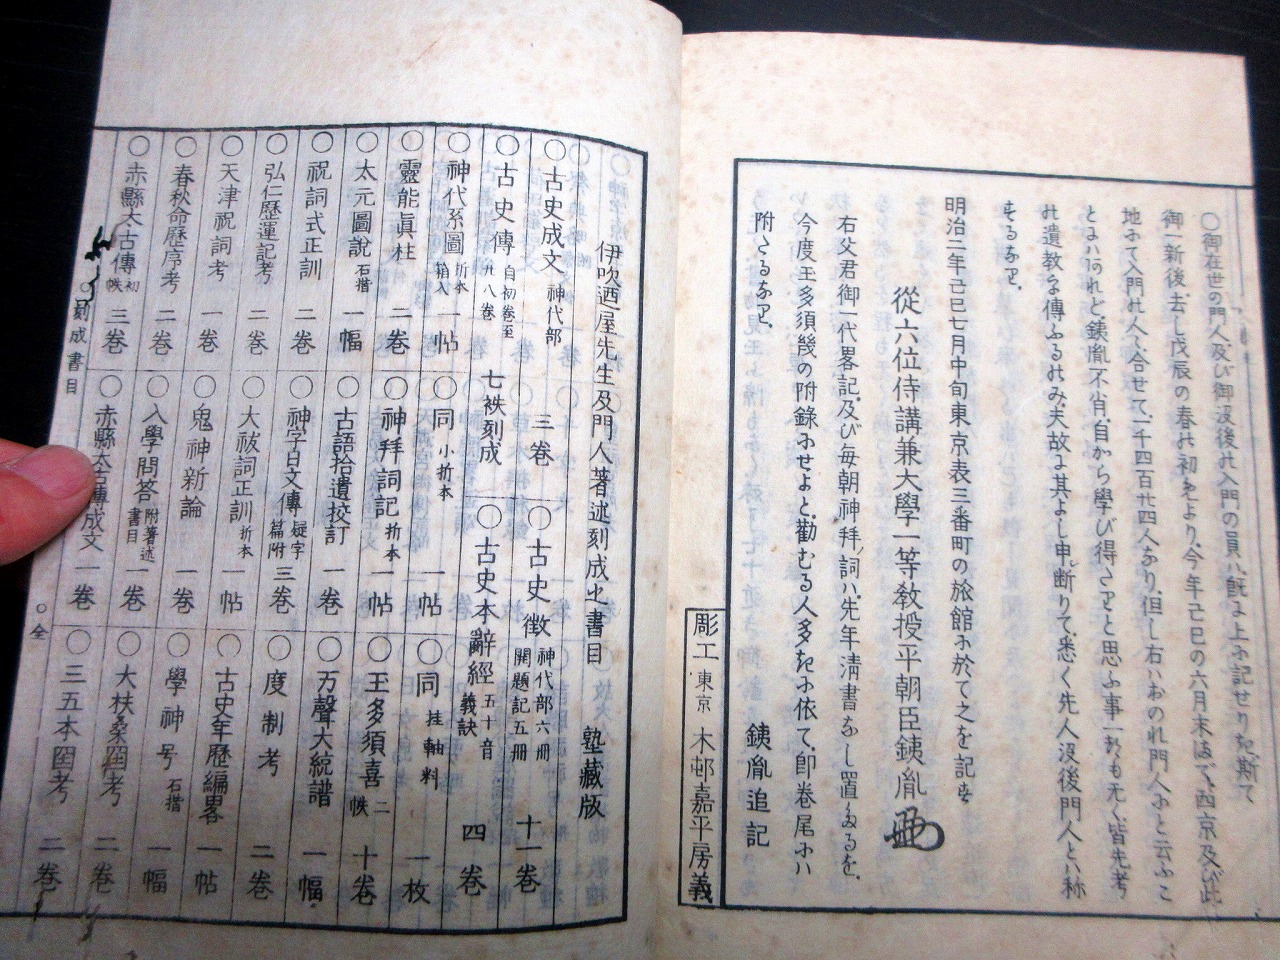 ○御在世の門人及び御沒後の入門の員ハ旣よ上に記せりを斯て
御一新後去し戊辰の春の初めより今年己巳の六月末まで西京及び此
地にて入門の人々合せて一千四百廿四人あり但し右ハおのれ門人と云ふこ
とハあれど銕胤不肖自から學び得さりと思ふ事一ツも无く皆先考
の遺敎を傳ふるのみ夫故よ其よし申斷りて悉く先人沒後門人とハ稱
するなり
明治二年己巳七月中旬東京表三番町の旅館に於て之を記す
從六位侍講兼大學一等敎授平朝臣銕胤
右父君御一代畧記及び每朝神拜詞ハ先年淸書なし置たるを
今度玉多須幾の附錄にせよと勸むる人多きに依て卽卷尾にハ
附たるなり
銕胤追記
彫工 東京 木邨嘉平房義
伊吹廼屋先生及門人著述刻成之書目 塾藏版
○古史成文 神代部 三卷 ○古史徵 神代部六册 開題記五册 十一卷
○古史傳 自初卷至廿八卷 七袟刻成 ○古史本辭經 五十音義訣 四卷
○神代系圖 折本箱入 一帖 ○同 小折本 一帖 ○同 挂軸料 一枚
○靈能眞柱 二卷 ○神拜詞記 折本 一帖 ○玉多須喜 二帙 十卷
○太元圖說 石摺 一幅 ○古語拾遺挍訂 一卷 ○万聲大統譜 一幅
○祝詞式正訓 二卷 ○神字日文傳 疑字篇附 三卷 ○度制考 二卷
○弘仁歷運記考 二卷 ○大祓詞正訓 折本 一帖 ○古史年歷編畧 一帖
○天津祝詞考 一卷 ○鬼神新論 一卷 ○學神号 石摺 一幅
○春秋命歷序考 二卷 ○入學問答 附著述書目 一卷 ○大扶桑國考 二卷
○赤縣太古傳 初帙 三卷 ○赤縣太古傳成文 一卷 ○三五本國考 二卷
○刻成書目 ○全